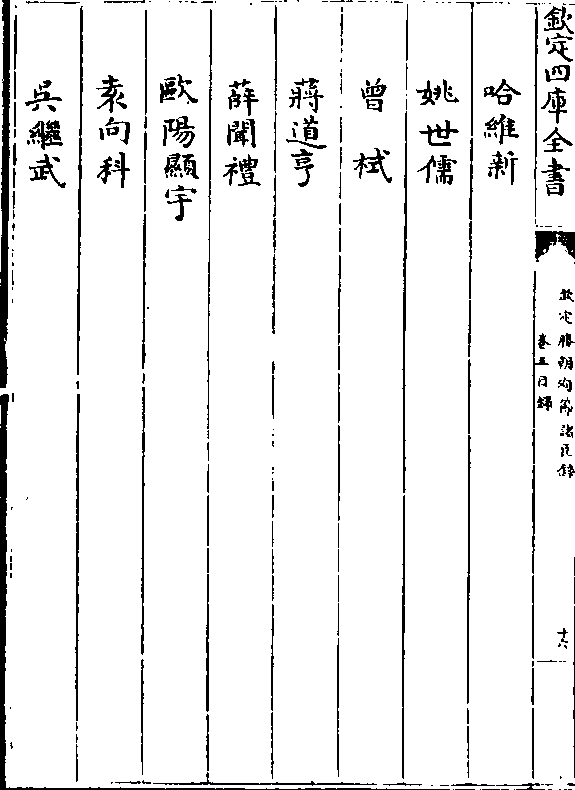 欽定四庫全書
欽定勝朝殉節諸臣錄
卷五目錄
十六
哈維新
姚世儒
曾栻
蔣道亨
薛聞禮
歐陽顯宇
袁向科
吳繼武